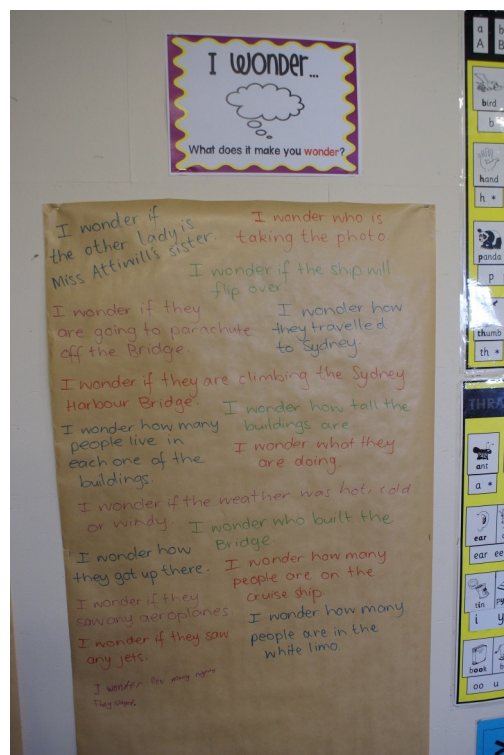 I WONDER...
What does it make you wonder?
I wonder if
the other lady is
Miss Attiwill's sister.
I wonder who is
taking the photo.
I wonder if the ship will
flip over.
I wonder if they
are going to parachute
off the Bridge.
I wonder how
they travelled
to Sydney.
I wonder if they are climbing the Sydney
Harbour Bridge.
I wonder how tall the
buildings are
I wonder how many
people live in
each one of the
buildings.
I wonder what they
are doing
I wonder if the weather was hot, cold
or windy.
I wonder who built the
Bridge.
I wonder how
they got up there.
I wonder how many
people are on the
cruise ship.
I wonder if they
saw any aeroplanes
I wonder how many
people are in the
white limo.
I wonder if they saw
any jets.
I wonder how many
They
a b
A B
bird
b
hand
h *
panda
p
thumb
th *
THRA
ant
a *
ear
ear ee
tin
i y
book
oo u